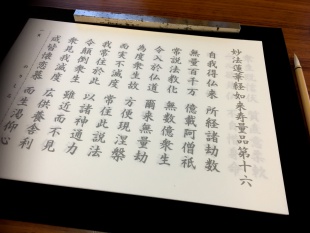 妙法蓮華経如来寿量品第十六
自我得仏来 所経諸劫数
無量百千万 億載阿僧祇
常説法教化 無数億衆生
令入於仏道 爾来無量劫
為度衆生故 方便現涅槃
而実不滅度 常住此説法
我常住於此 以諸神通力
令顛倒衆生 雖近而不見
衆見我滅度 広供養舎利
咸皆懐恋慕 而生渇仰心